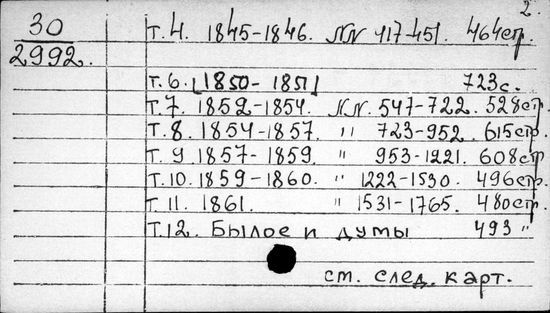 2.
30
2992.
т. 4. 1845-1846. NN 417-451. 464стр.
т. 6. [1850-1851] 723с.
т. 7. 1852-1854. NN. 547-722. 528стр.
т. 8. 1854-1857. " 723-952. 615стр.
т. 9 1857-1859. " 953-1221. 608стр.
т. 10. 1859-1860. " 1222-1530. 496стр.
т. 11. 1861. " 1531-1765. 480стр.
т. 12. Былое и думы 493 "
см. след. карт.